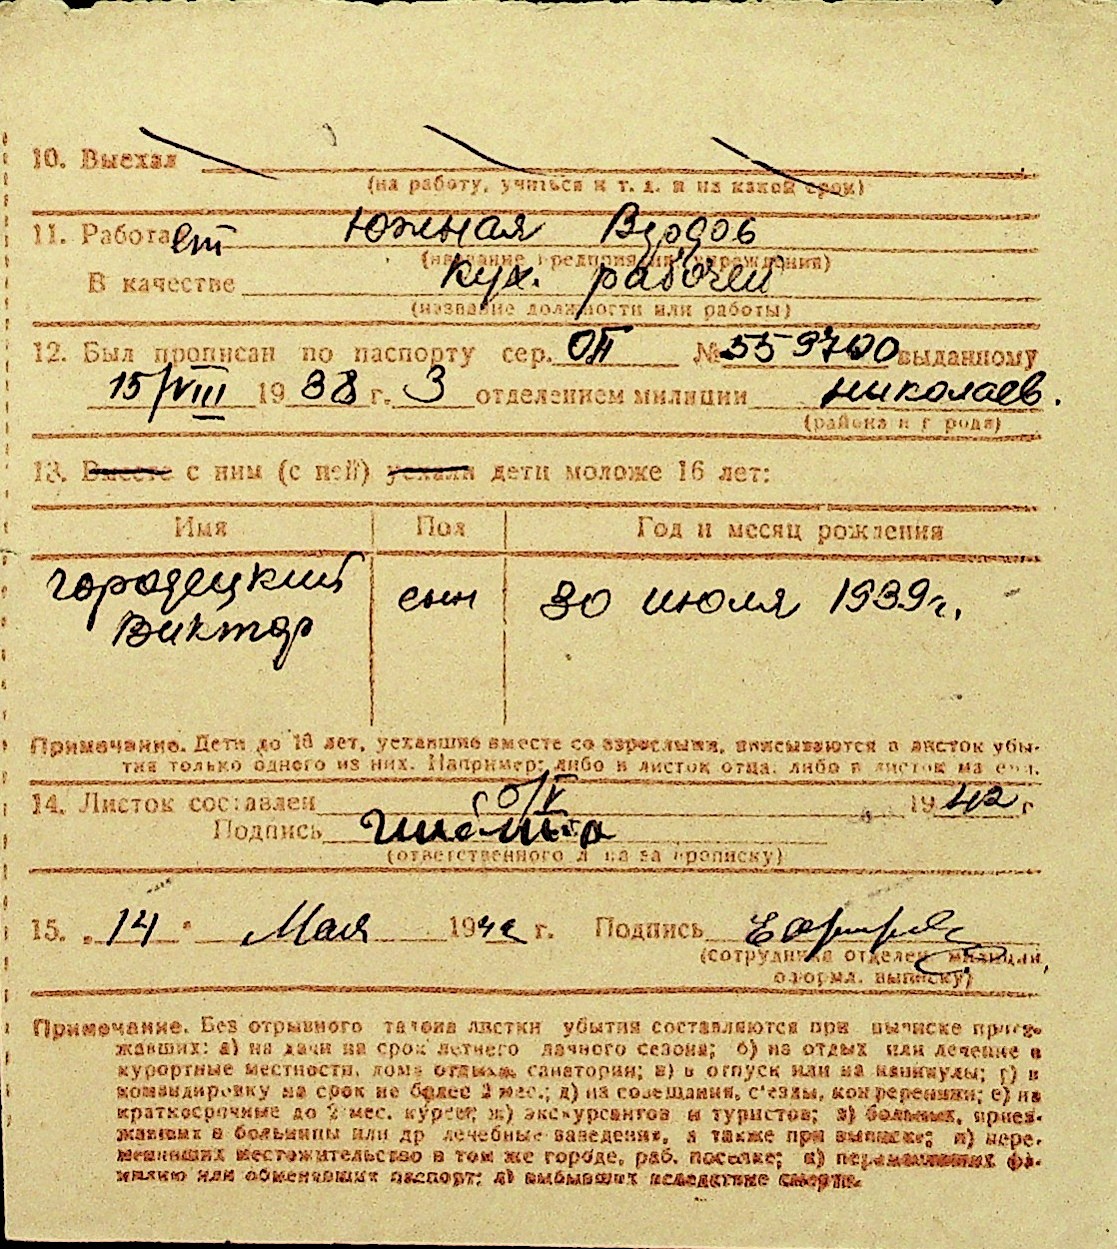 10. Выехал
(на работу, учиться и т. д. и на какой срок)
11. Работает Южная
(название предприятия, учреждения)
В качестве кух. рабочей
(название должности или работы)
12. Был прописан по паспорту сер. ОП № выданному
15/VIII 1938 г. 3 отделением милиции Николаев.
(района и города)
13. Вместе с ним (с ней) уехали дети моложе 16 лет:
Имя Пол Год и месяц рождения
Городецкий сын 30 июля 1939 г.
Виктор
Примечание. Дети до 16 лет, уехавшие вместе со взрослыми, вписываются в листок убы-
тия только одного из них. Например: либо в листок отца, либо в листок матери.
14. Листок составлен 1942 г
Подпись
(ответственного лица за прописку)
15. „14" Мая 1942 г. Подпись
(сотрудника отделен. милиции,
оформл. выписку)
Примечание. Без отрывного талона листки убытия составляются при выписке приез-
жавших: а) на дачи на срок летнего дачного сезона; б) на отдых или лечение в
курортные местности, дома отдыха, санатории; в) в отпуск или на каникулы; г) в
командировку на срок не более 2 мес.; д) на совещания, с'езды, конференции; е) на
краткосрочные до 2 мес. курсы; ж) экскурсантов и туристов; з) больных, приез-
жавших в больницы или др лечебные заведения, а также при выписке; и) пере-
менивших местожительство в том же городе, раб. поселке; к) переменивших фа-
милию или обменявших паспорт; л) выбывших вследствие смерти.